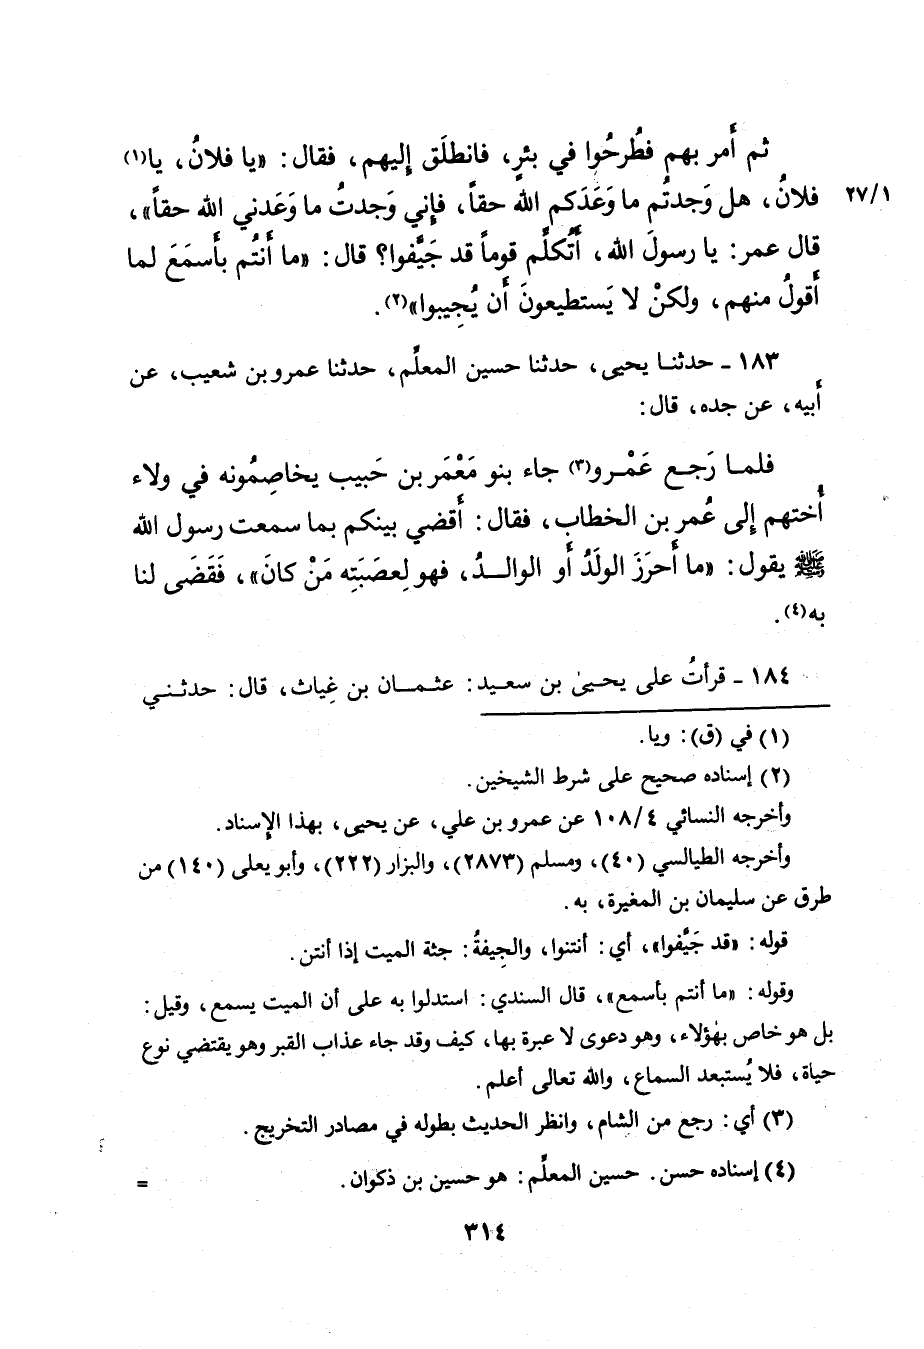 ثم أَمر بهم فطُرحُوا في بئرٍ، فانطلَق إِليهم، فقال: «يا فلانُ، يا(١)
فلانُ، هل وَجدتُم ما وَعَدَكم الله حقاً، فإِني وَجدتُ ما وَعَدني الله حقاً»، ٢٧/١
قال عمر: يا رسولَ الله، أَتُكلِّم قوماً قد جَيَّفوا؟ قال: «ما أَنتُم بأَسمَعَ لما
أَقولُ منهم، ولكنْ لا يَستطيعونَ أَن يُجِيبوا»(٢).
١٨٣ ـ حدثنا يحيى، حدثنا حسين المعلِّم، حدثنا عمرو بن شعيب، عن
أَبيه، عن جده، قال:
فلما رَجع عَمْرو(٣) جاء بنو مَعْمَر بن حَبيب يخاصِمُونه في ولاء
أُختهم إِلى عُمر بن الخطاب، فقال: أَقضي بينكم بما سمعت رسول الله
ﷺ يقول: «ما أَحرَزَ الولَدُ أَو الوالدُ، فهو لِعصَبَتِه مَنْ كانَ»، فَقَضَى لنا
به(٤).
١٨٤ ـ قرأتُ على يحيىٰ بن سعيد: عثمان بن غِياث، قال: حدثني
(١) في (ق): ويا.
(٢) إسناده صحيح على شرط الشيخين.
وأخرجه النسائي ١٠٨/٤ عن عمرو بن علي، عن يحيى، بهذا الإسناد.
وأخرجه الطيالسي (٤٠)، ومسلم (٢٨٧٣)، والبزار (٢٢٢)، وأبو يعلى (١٤٠) من
طرق عن سليمان بن المغيرة، به.
قوله: «قد جَيَّفوا»، أي: أنتنوا، والجِيفةُ: جثة الميت إذا أنتن.
وقوله: «ما أنتم بأسمع»، قال السندي: استدلوا به على أن الميت يسمع، وقيل:
بل هو خاص بهٰؤلاء، وهو دعوى لا عبرة بها، كيف وقد جاء عذاب القبر وهو يقتضي نوع
حياة، فلا يُستبعد السماع، والله تعالى أعلم.
(٣) أي: رجع من الشام، وانظر الحديث بطوله في مصادر التخريج.
(٤) إسناده حسن. حسين المعلِّم: هو حسين بن ذكوان. =
٣١٤